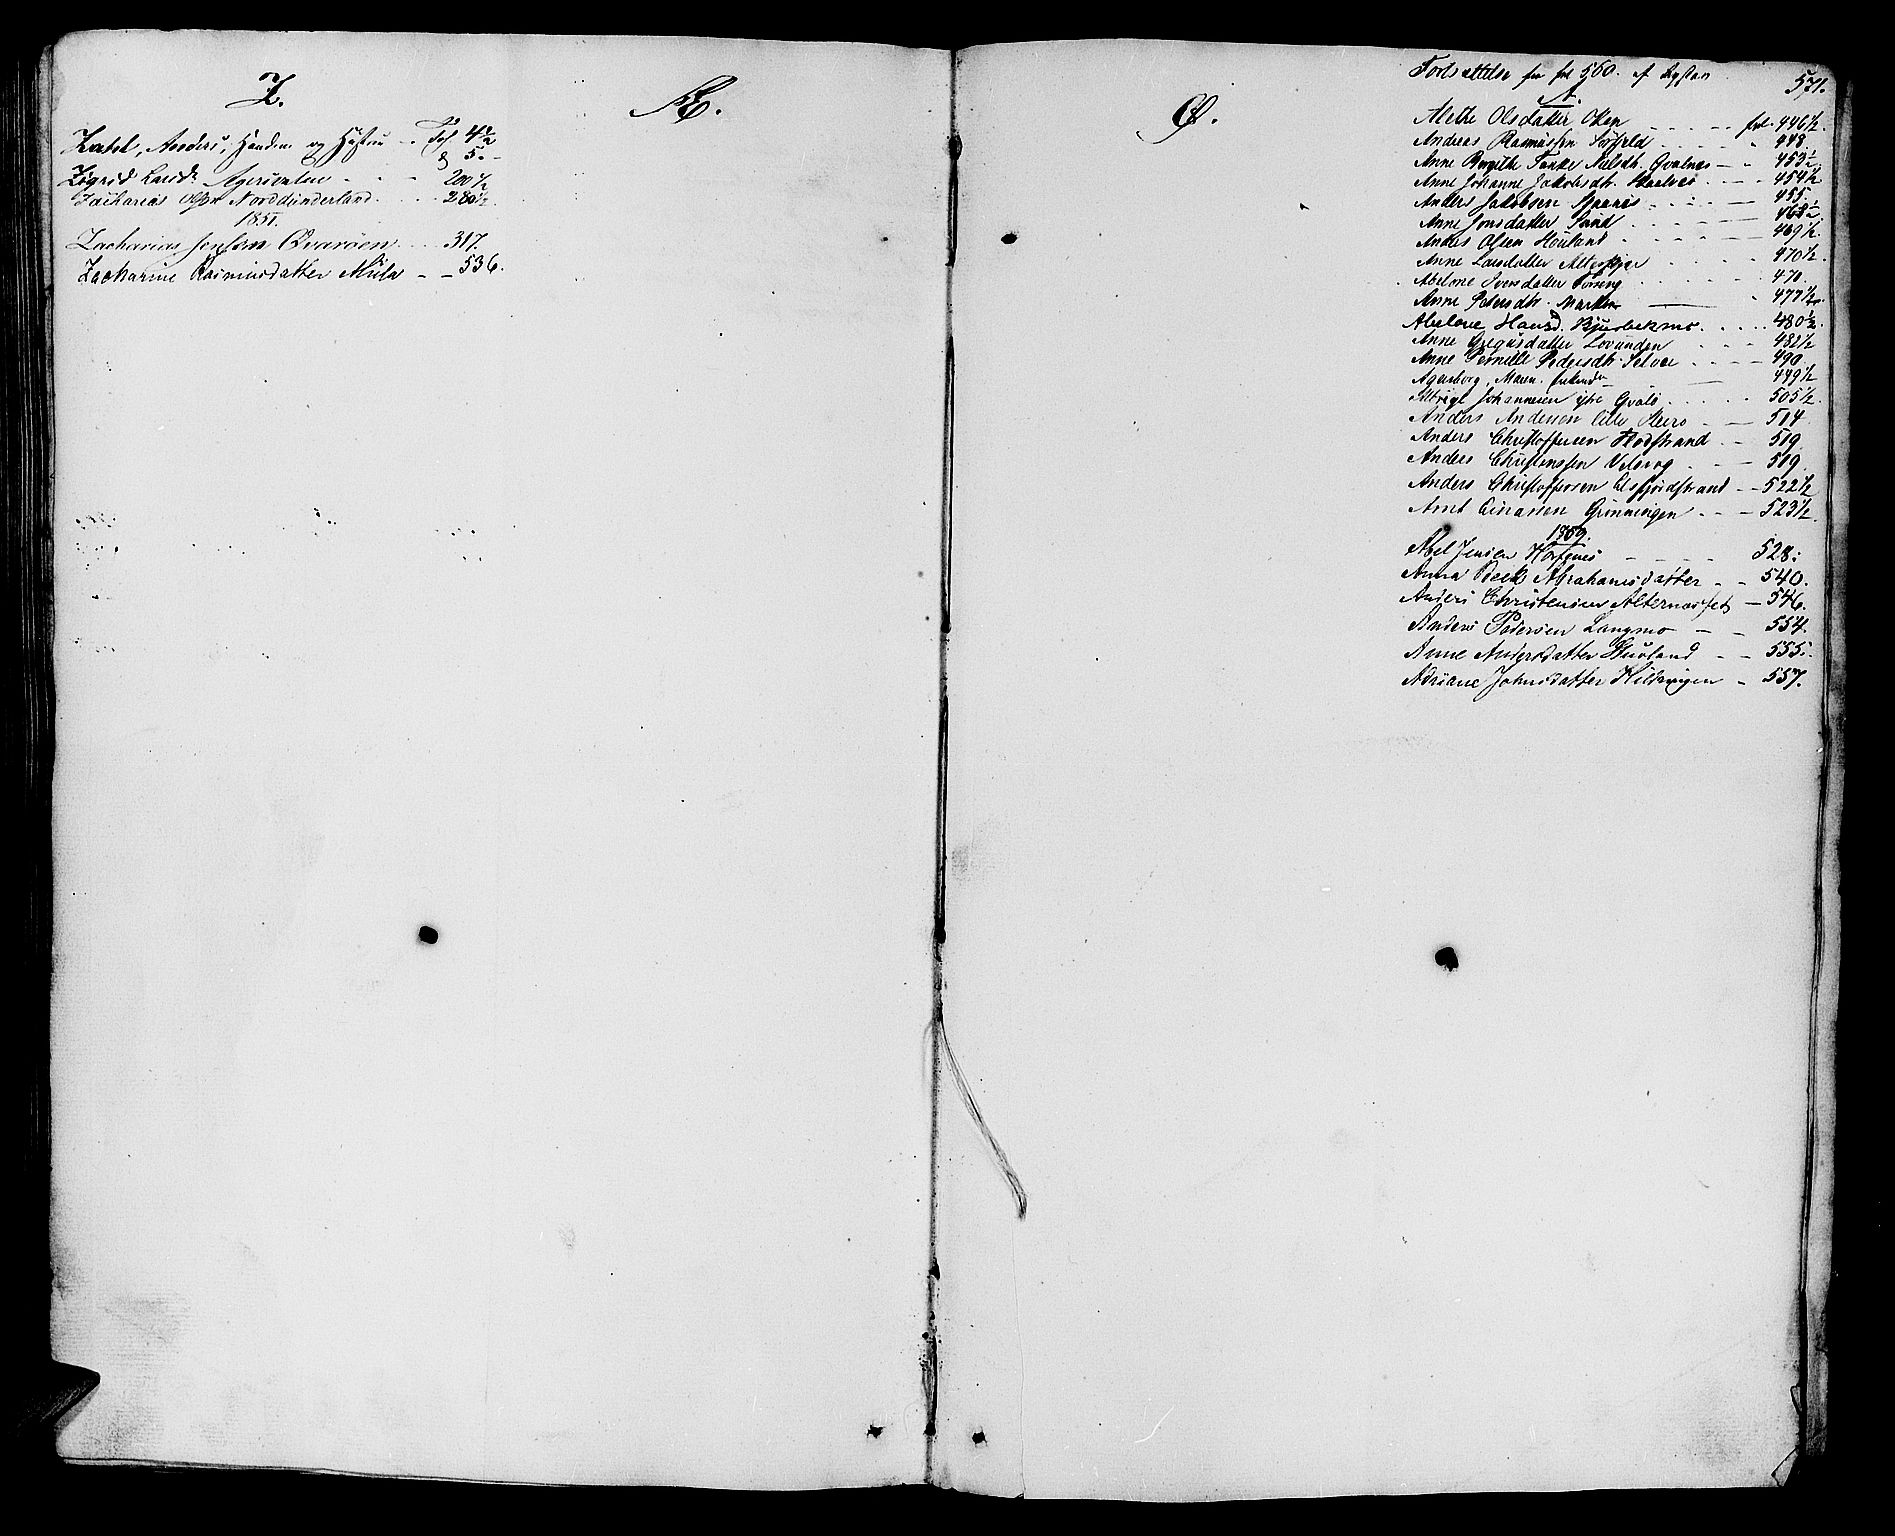 Z.
Zahl, Anders, Handnæ og Hustru - - Fol. 4 1/2
& 5. -
Zigrid Larsdr. Agersvalen - - - 200 1/2
Zacharias Olsen Norddünderland. - - - 280 1/2.
1851.
Zacharias Jensen Qvarøen - - - 317.
Zacharine Rasmusdatter Müla - - 536.
Æ.
Ø.
571.
Fortsættelse fra fol 560. af
A.
Alethe Olsdatter Oken - - - - - fol. 446 1/2.
Andreas Rasmüssen - - - - - 448.
Anne Birgithe Tanke Nilsdtr. Qvalnes - - - 453 1/2
Anne Johanne Jakobsdtr. - - - 454 1/2
Anders Jakobsen - - - - - 455.
Anne Jonsdatter Sund - - - - 468 1/2
Anders Olsen Houland - - - - - 469 1/2.
Anne Larsdatter - - - - 470 1/2
Abelone Iversdatter Forseng - - - - - 470.
Anne Petersdtr. Marken - - 477 1/2
Abelone Hansd. Bjurbekmo. - - - - 480 1/2.
Anne Gregusdatter Lovunden - - - 482 1/2
Anne Pernelle Pedersdtr. Selvær - - - 490.
Agersborg, Maren - - 449 1/2
Johannesen ytre Qvalø - - - - - 505 1/2.
Anders Andersen - - - 514.
Anders Christoffersen Flodstrand - - 519.
Anders Christensen Velsvog - - - 519.
Anders Christoffersen Elsfjordstrand - - 522 1/2
Arnt Einarsen Grønningen - - - 523 1/2.
1859.
Abel Jensen - - - - 528.
Anna Beek Abrahamsdatter - - 540.
Anders Christensen Alternæsset - 546.
Anders Pedersen Langmo - - 554.
Anne Andersdatter - - 555.
Adriane Johnsdatter Hildringen - 557.